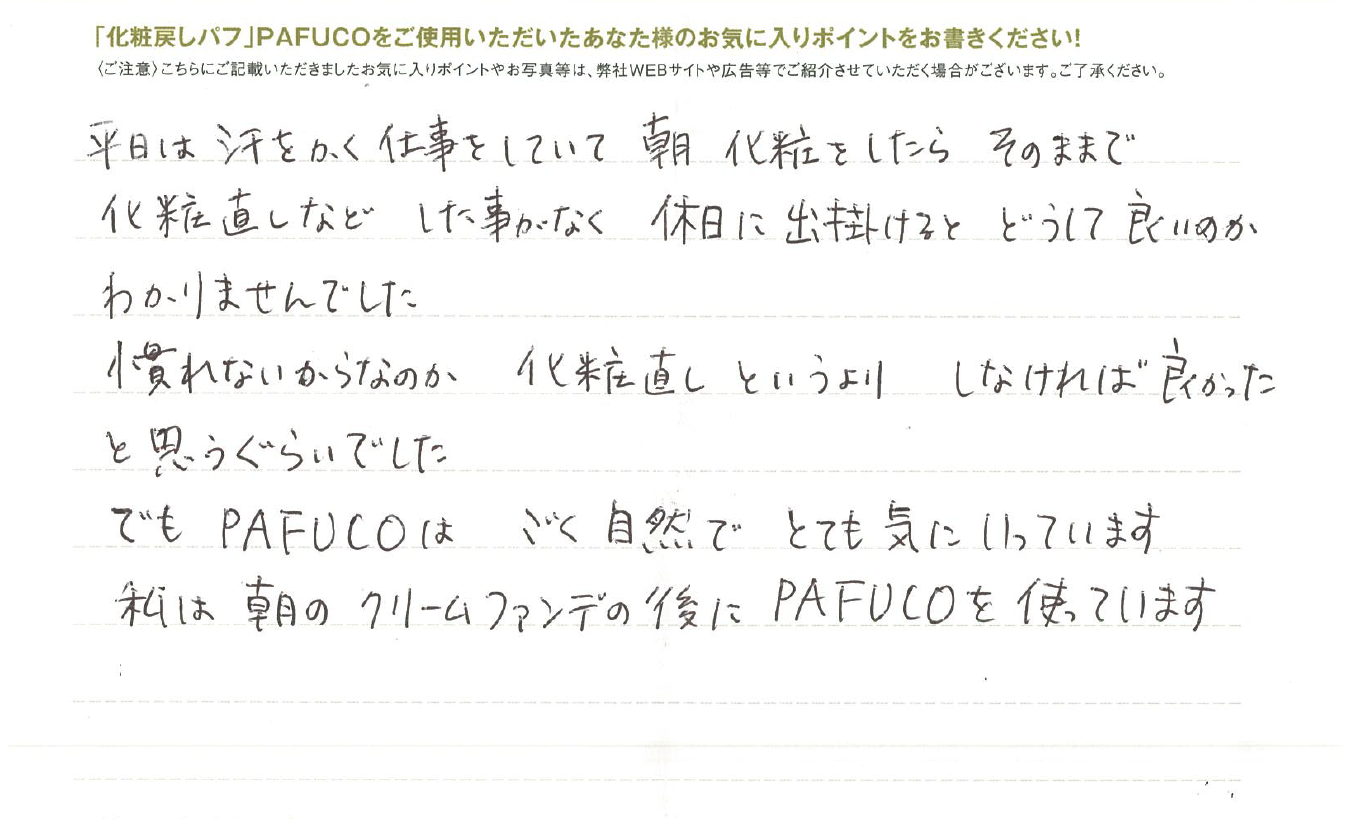 「化粧戻しパフ」PAFUCOをご使用いただいたあなた様のお気に入りポイントをお書きください!
〈ご注意〉こちらにご記載いただきましたお気に入りポイントやお写真等は、弊社WEBサイトや広告等でご紹介させていただく場合がございます。ご了承ください。
平日は 汗をかく 仕事をしていて 朝 化粧をしたら そのままで
化粧直しなど した事がなく 休日に 出掛けると どうして 良いのか
わかりませんでした
慣れないからなのか 化粧直し というより しなければ 良かった
と 思うぐらいでした
でも PAFUCOは ごく 自然で とても 気に いっています
私は 朝の クリームファンデの 後に PAFUCOを 使っています